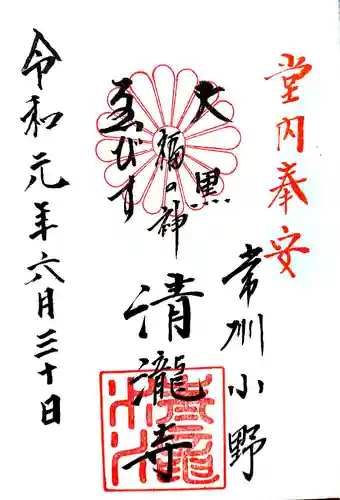 堂内奉安
常州小野
大黒
福の神
ゑびす
清瀧寺
令和元年六月三十日